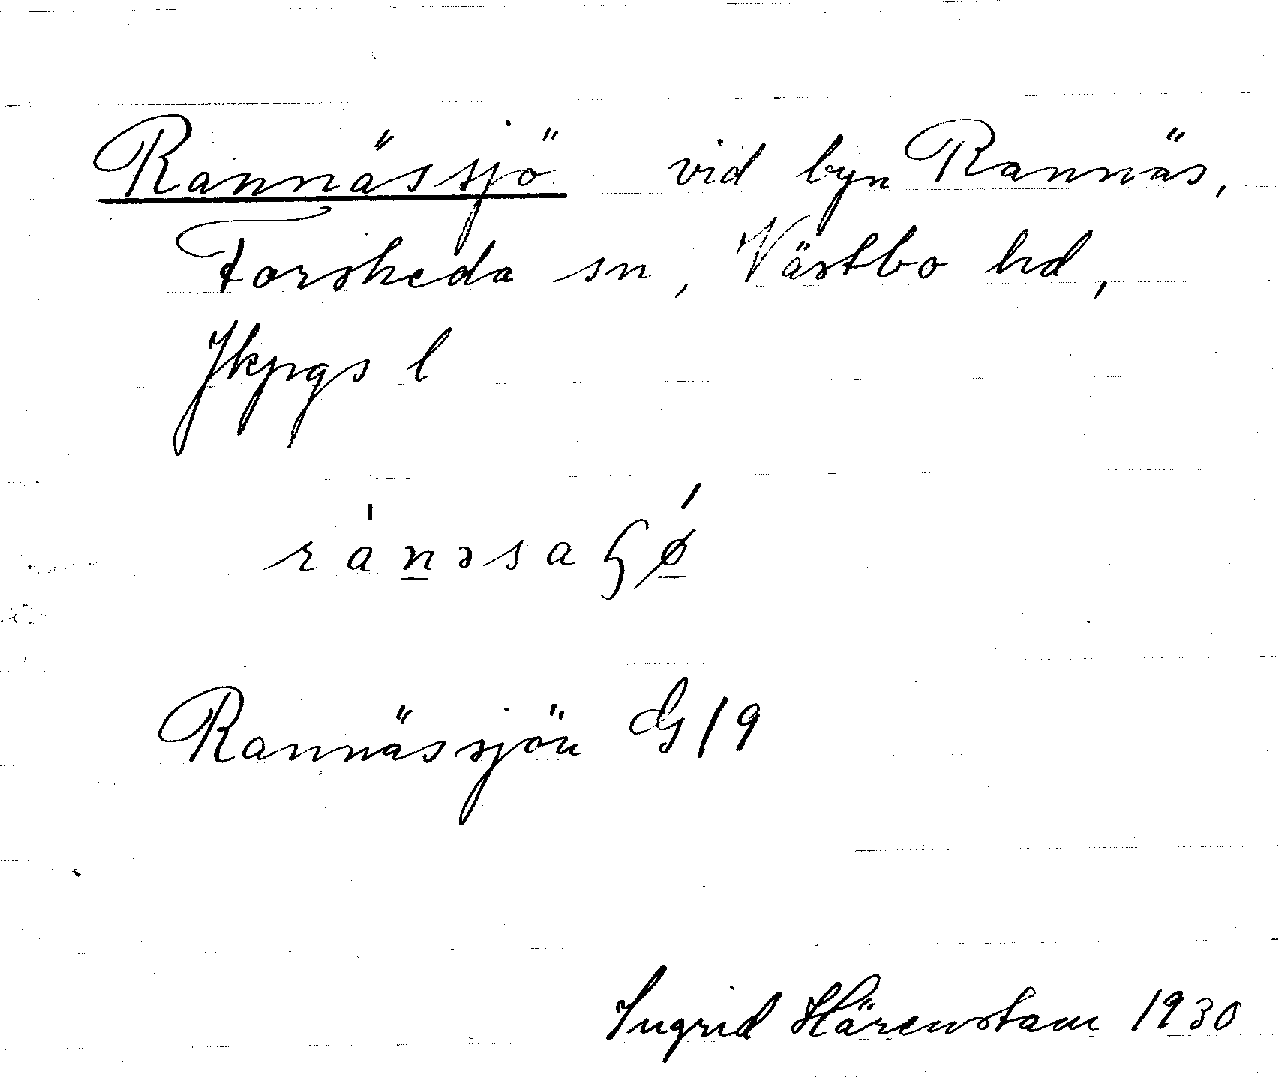 Rannässjö vid byn Rannäs,
Forsheda sn, Västbo hd,
Jkpgs l
ránəsaɧǿ
Rannässjön G/9
Ingrid Härenstam 1930